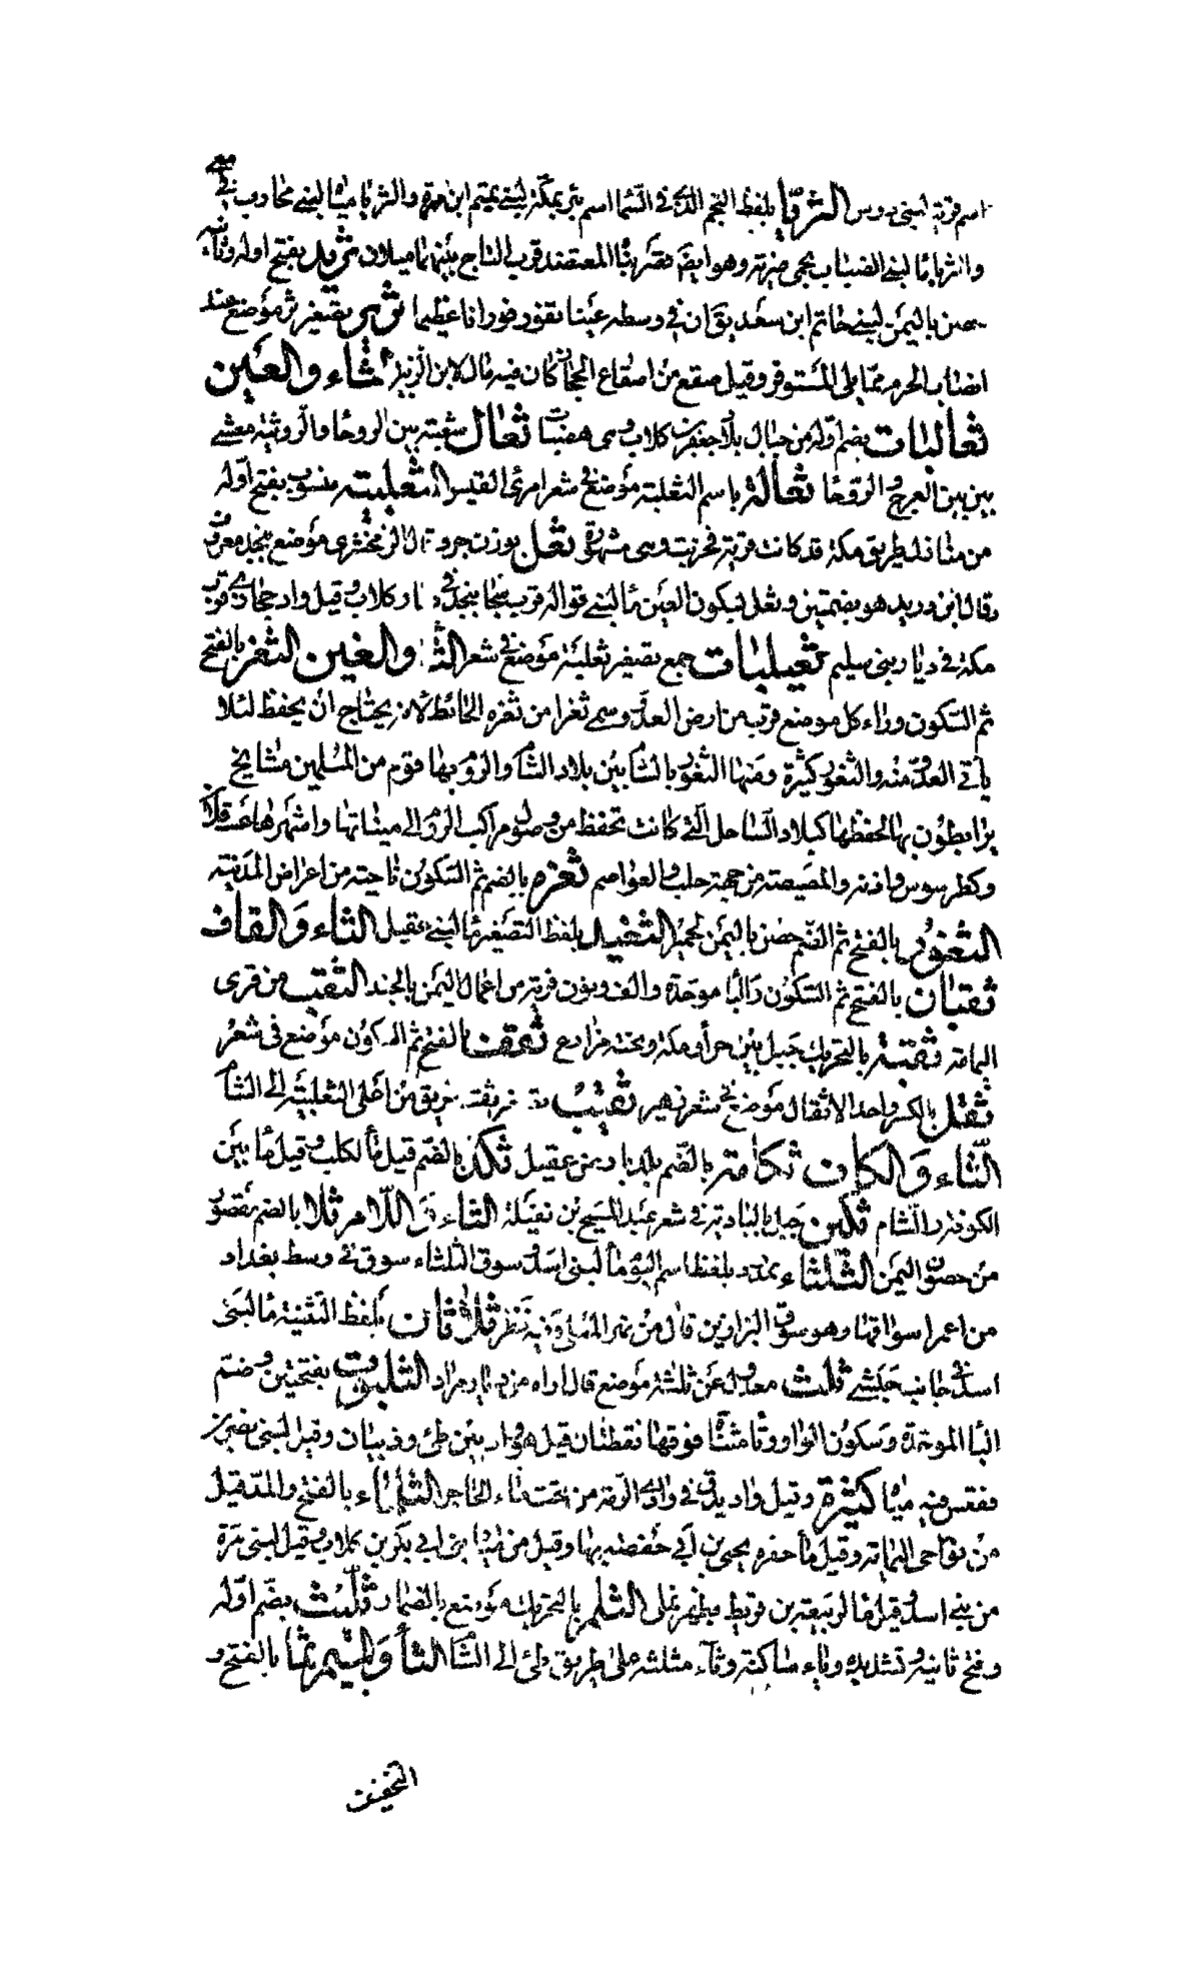 اسم قرية لبنى دوس الثريا بلفظ النجم الذى فى السما اسم بئر بمكة لبنى تيم ابن مرة والثريا مياه لبنى محارب فى
والثريا ما لبنى الضباب بحمى ضرية وهو ايضا قصر بناه المعتضد قرب التاج بينهما ميلان ثريد بفتح اوله وثانيه
حصن باليمن لبنى حاتم ابن سعد يقال ان فى وسطه عينا تفور فورانا عظيما ثرير تصغير ثر موضع عند
انصاب الحرم مما يلى المستوفز وقيل صقع من اصقاع الحجاز كان فيه مال لابن الزبير الثاء والعين
ثعالبات بضم اوله من جبال بلاد جعفر بن كلاب وهى هضبات ثعال شعبة بين الروحا والرويثة معشى
بين بين العرج والروحا ثعالة باسم الثعلبة موضع فى شعر امرئ القيس الثعلبية منسوب بفتح اوله
من منازل طريق مكة قد كانت قرية فخربت وهى مشهورة ثعل بوزن جرد قال الزمخشرى موضع بنجد معروف
وقال ابن دريد هو بضمتين وثعل بسكون العين ما لبنى قوالة قرب سجا بنجد فى ديار كلاب وقيل واد حجازى قرب
مكة فى ديار بنى سليم ثعيلبات جمع تصغير ثعلبة موضع فى شعر الثاء والغين الثغر بالفتح
ثم السكون وراء كل موضع قرب من ارض العدو وسمى ثغرا من ثغرة الحائط لانه يحتاج ان يحفظ لئلا
ياتى العدو منه والثغور كثيرة ومنها الثغور بالشام بين بلاد الشام والروم بها قوم من المسلمين مشايخ
يرابطون بها لحفظها كبلاد الساحل التى كانت تحفظ من وصول مراكب الروم الى مينائها واشهرها عسقلان
وكطرسوس واذنة والمصيصة من جهة حلب والعواصم ثغرة بالضم ثم السكون ناحية من اعراض المدينة
الثغور بالفتح ثم الضم حصن باليمن لحمير الثغيل بلفظ التصغير ما لبنى عقيل الثاء والقاف
ثقبان بالفتح ثم السكون والبا موحدة والف ونون قرية من اعمال اليمن بالجند الثقب من قرى
اليمامة ثقبة بالتحريك جبل بين حرا ومكة وتحته مزارع ثقف بالفتح ثم السكون موضع فى شعر
ثقل بالكسر واحد الاثقال موضع فى شعر زهير ثقيب طريق من اعلى الثعلبية الى الشام
الثاء والكاف ثكامة بالضم بلد بارض عقيل ثكد بالضم قيل ما لكلب وقيل ما بين
الكوفة والشام ثكن جبل بالبادية فى شعر عبد المسيح بن نفيلة الثاء واللام ثلا بالضم مقصور
من حصون اليمن الثلاثاء ممدود بلفظ اسم اليوم ما لبنى اسد وسوق الثلاثاء سوق فى وسط بغداد
من اعمر اسواقها وهو سوق البزازين ثلاثان بلفظ التثنية ما لبنى
اسد فى جانب حبشى ثلاث معدول عن ثلثة موضع قال اراه من ديار مراد الثلبوت بفتحتين وضم
البا الموحدة وسكون الواو وتا مثناة فوقها نقطتان قيل هو واد بين طئ وذبيان وقيل لبنى نصر
فقعس فيه مياه كثيرة وقيل واد يدفع فى وادى الرمة من تحت ماء الحاجر الثلماء بالفتح والمد قيل
من نواحى اليمامة وقيل ما حفره يحيى بن ابى حفصة بها وقيل من مياه بنى ابى بكر بن كلاب وقيل لبنى مرة
من بنى اسد وقيل ما لربيعة بن قريط بظهر نملى الثلم بالتحريك موضع بالصمان ثليث بضم اوله
وفتح ثانيه وتشديده وياء ساكنة وثاء مثلثة على طريق طئ الى الشام الثاء والميم ثما بالفتح و
التخفيف